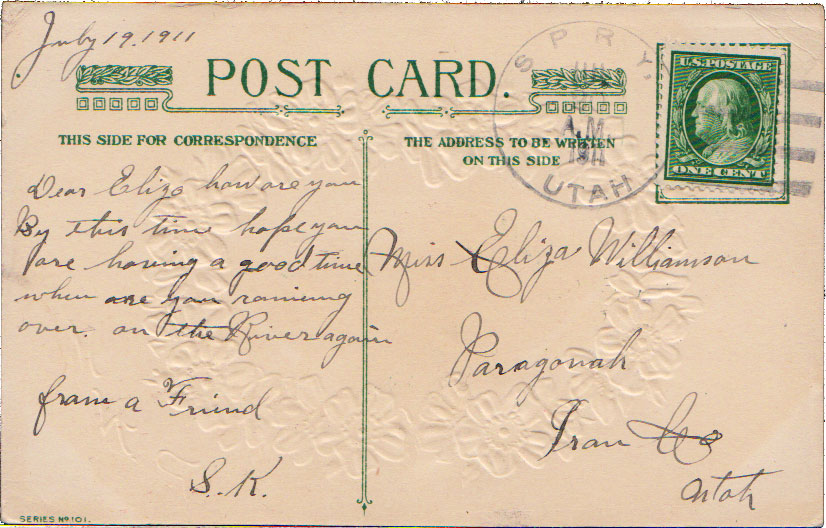 July 19, 1911
POST CARD.
THIS SIDE FOR CORRESPONDENCE
THE ADDRESS TO BE WRITTEN
ON THIS SIDE
SPRY,
A.M.
1911
UTAH
U.S. POSTAGE
ONE CENT
Dear Eliza how are you
By this time hope you
are having a good time
when are you
over. on the River again
from a Friend
S.K.
Miss Eliza Williamson
Paragonah
Iron Co
Utah
SERIES No 101.